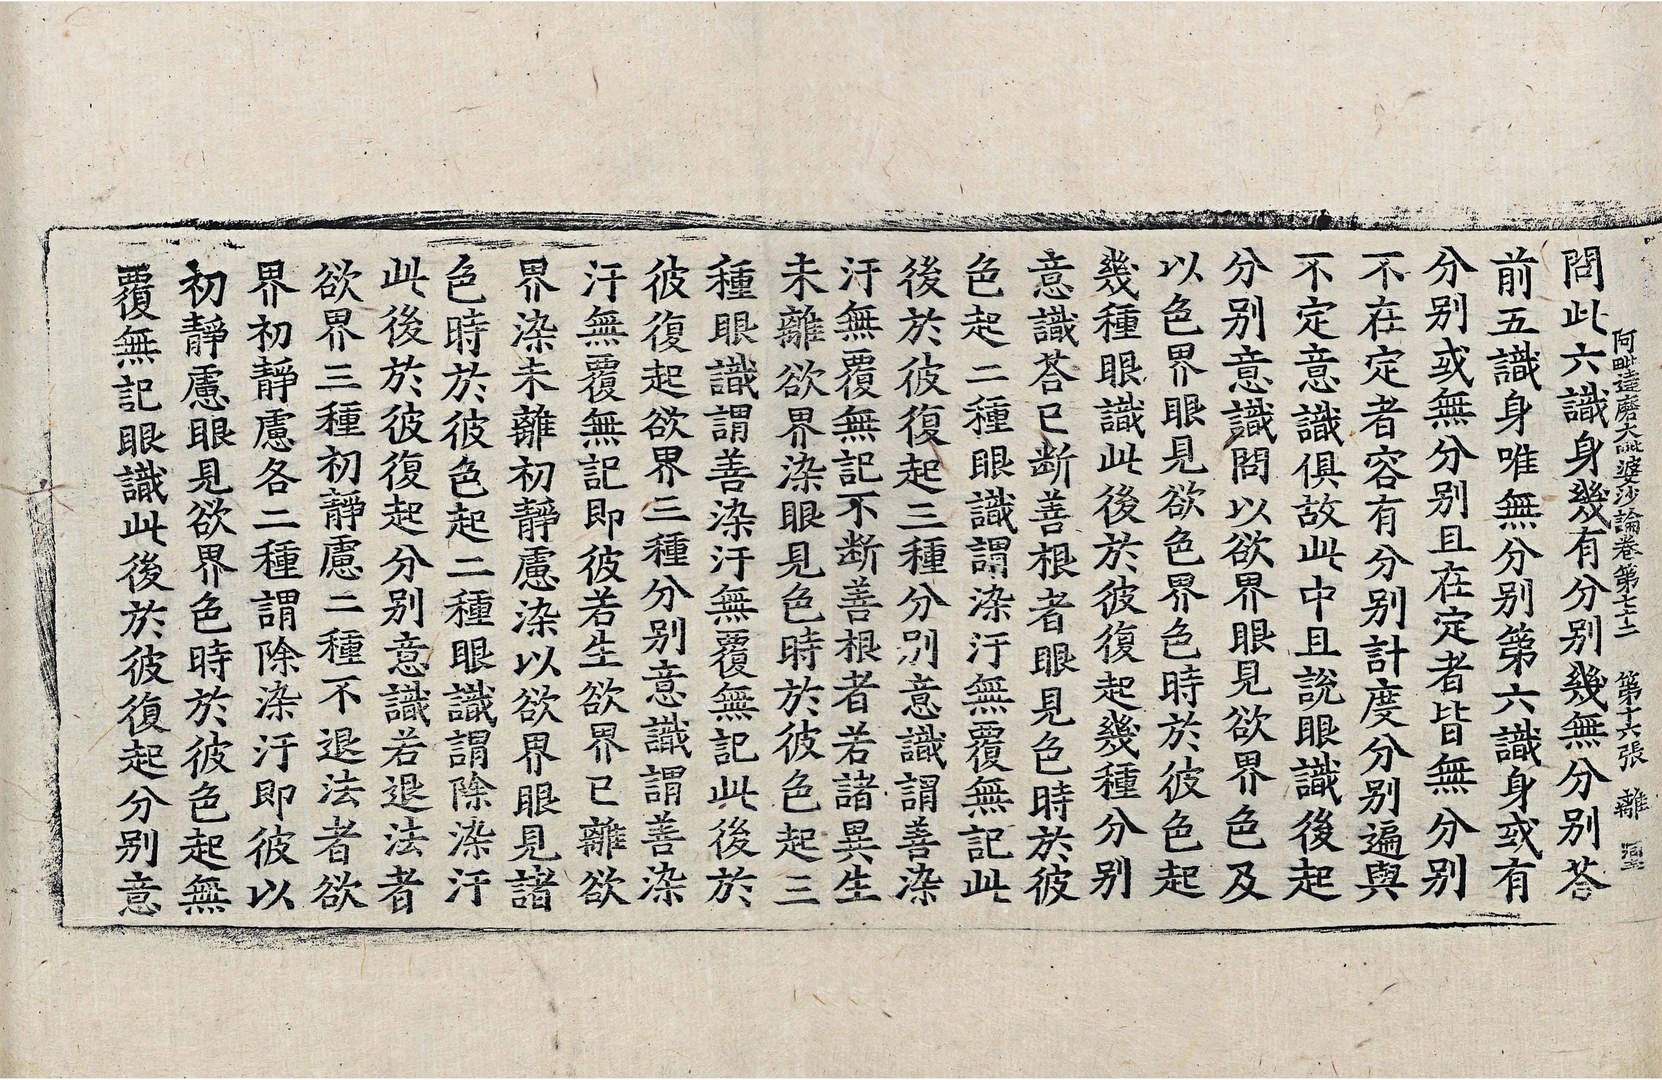 阿毗達磨大毗婆沙論卷第七十二　第十六張　離
問此六識身幾有分別幾無分別荅
前五識身唯無分別第六識身或有
分別或無分別且在定者皆無分別
不在定者容有分別計度分別遍與
不定意識俱故此中且說眼識後起
分別意識問以欲界眼見欲界色及
以色界眼見欲色界色時於彼色起
幾種眼識此後於彼復起幾種分別
意識荅已斷善根者眼見色時於彼
色起二種眼識謂染汙無覆無記此
後於彼復起三種分別意識謂善染
汙無覆無記不斷善根者若諸異生
未離欲界染眼見色時於彼色起三
種眼識謂善染汙無覆無記此後於
彼復起欲界三種分別意識謂善染
汙無覆無記即彼若生欲界已離欲
界染未離初靜慮染以欲界眼見諸
色時於彼色起二種眼識謂除染汙
此後於彼復起分別意識若退法者
欲界三種初靜慮二種不退法者欲
界初靜慮各二種謂除染汙即彼以
初靜慮眼見欲界色時於彼色起無
覆無記眼識此後於彼復起分別意